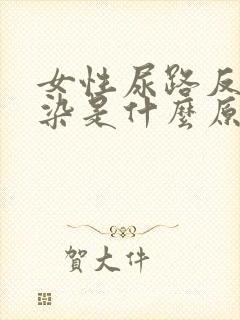 女性尿路反
染是什麼原
賀大件